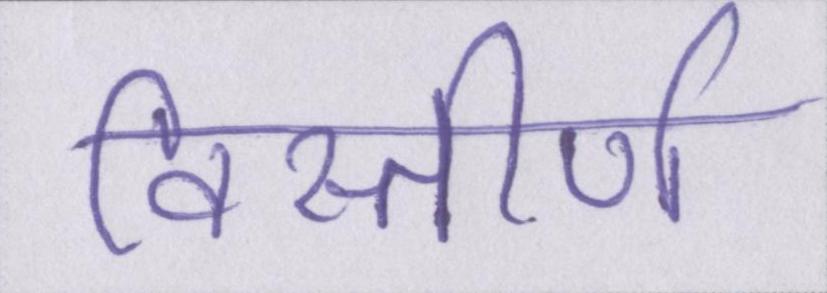 विस्तीर्ण